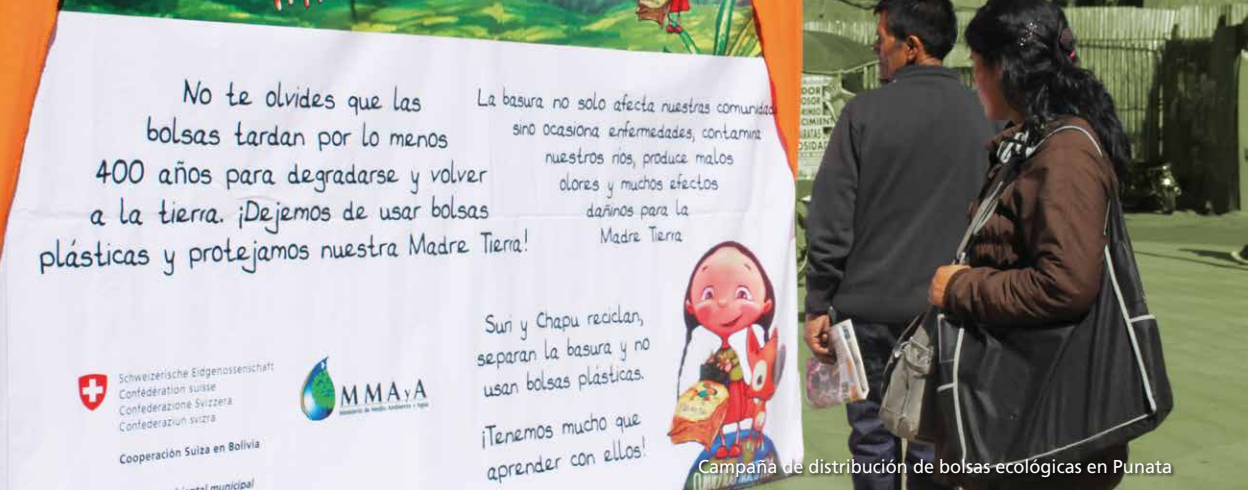 No te olvides que las
bolsas tardan por lo menos
400 años para degradarse y volver
a la tierra. ¡Dejemos de usar bolsas
plásticas y protejamos nuestra Madre Tierra!
La basura no solo afecta nuestras comunidad
sino ocasiona enfermedades, contamina
nuestros ríos, produce malos
olores y muchos efectos
dañinos para la
Madre Tierra
Suri y Chapu reciclan,
separan la basura y no
usan bolsas plásticas.
¡Tenemos mucho que
aprender con ellos!
Schweizerische Eidgenossenschaft
Confédération suisse
Confederazione Svizzera
Confederaziun svizra
Cooperación Suiza en Bolivia
MMAyA
Ministerio de Medio Ambiente y Agua
municipal
Campaña de distribución de bolsas ecológicas en Punata